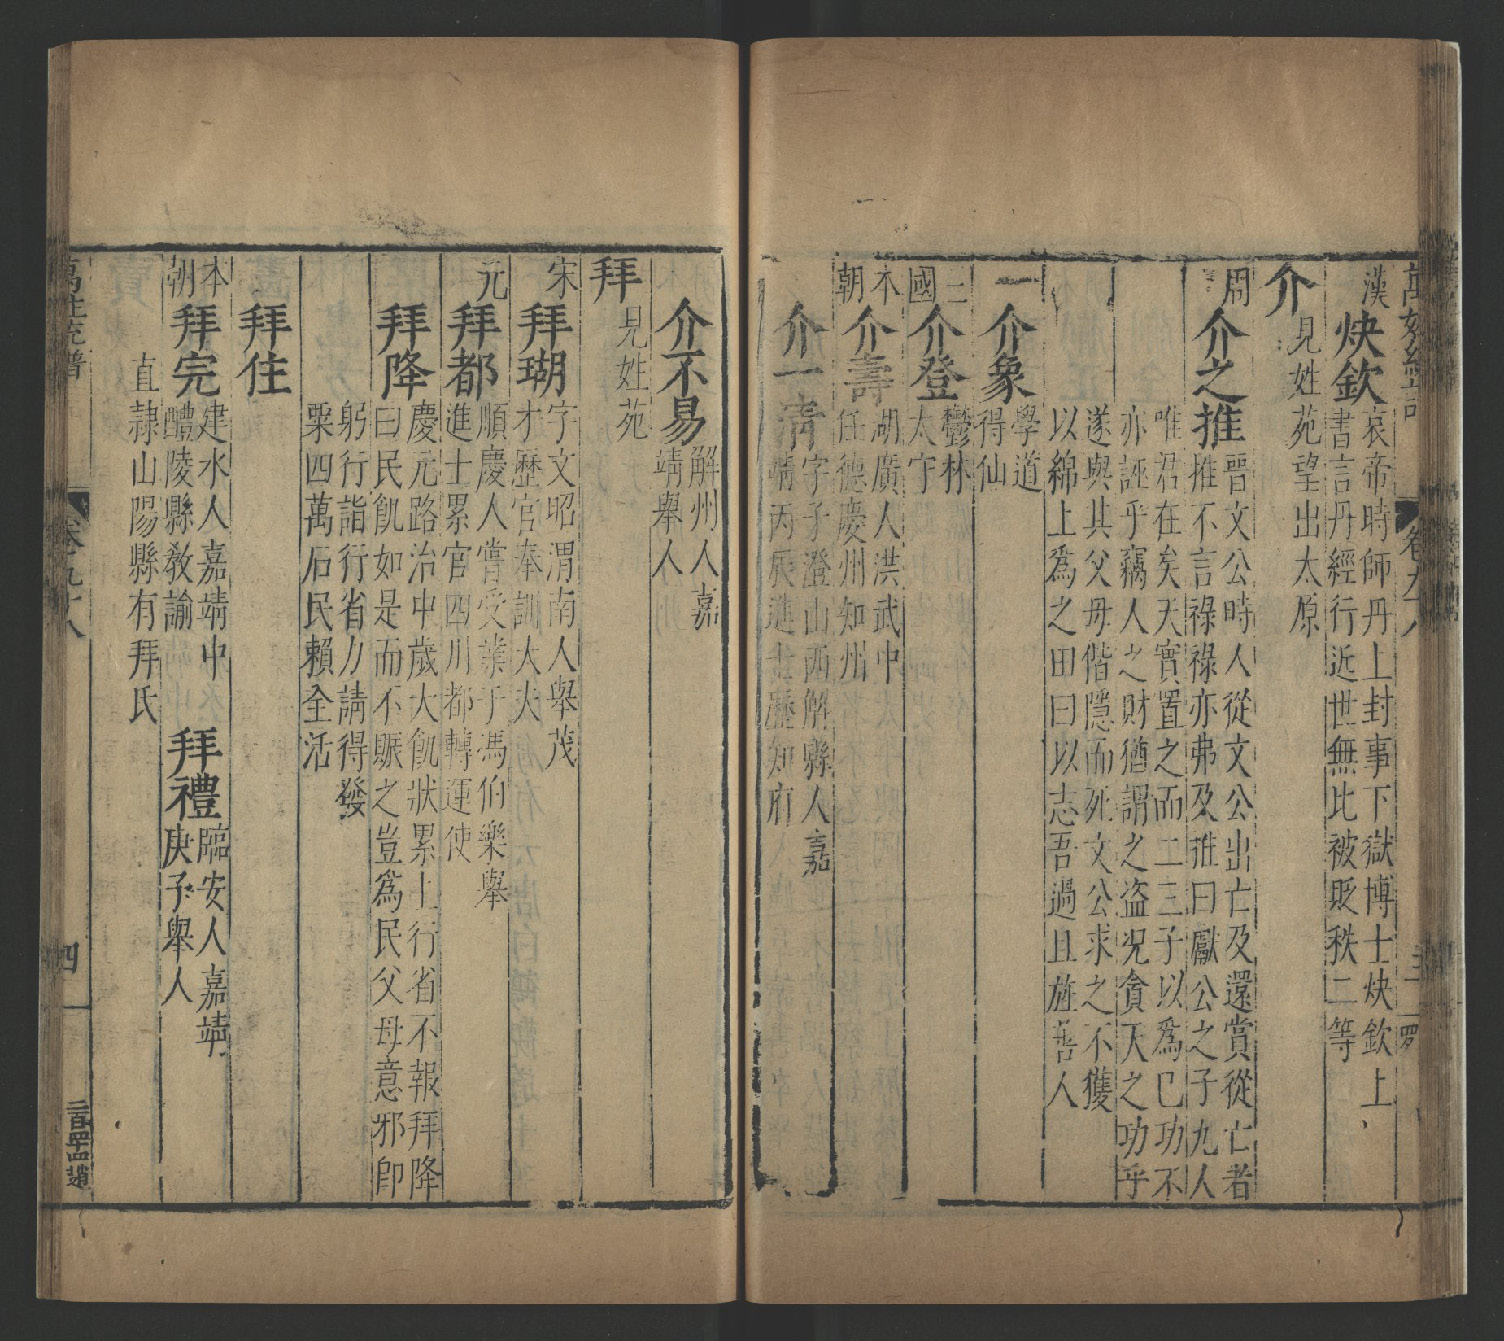 萬姓統譜
卷九十八
漢 炔欽 哀帝時師丹上封事下獄博士炔欽上
書言丹經行近世無比被貶秩二等
介 見姓苑望出太原
周 介之推 晉文公時人從文公出亡及還賞從亡者
推不言祿祿亦弗及推曰獻公之子九人
唯君在矣天實置之而二三子以爲己功不
亦誣乎竊人之財猶謂之盜况貪天之功乎
遂與其父母偕隱而死文公求之不獲
以綿上爲之田曰以志吾過且旌善人
一 介象 學道
得仙
三國 介登 鬱林
太守
本朝 介壽 胡廣人洪武中
任德慶州知州
介一清 字子澄山西解縣人嘉
靖丙辰進士歷知府
介不易 解州人嘉
靖舉人
拜 見姓苑
宋 拜瑚 字文昭渭南人舉茂
才歷官奉訓大夫
元 拜都 順慶人嘗受業于馮伯樂舉
進士累官四川都轉運使
拜降 慶元路治中歲大飢狀累上行省不報拜降
曰民飢如是而不賑之豈爲民父母意邪卽
躬行詣行省力請得發
粟四萬石民賴全活
拜住
本朝 拜完 建水人嘉靖中
醴陵縣教諭
拜禮 臨安人嘉靖
庚子舉人
直隸山陽縣有拜氏
萬姓統譜
卷九十八
四